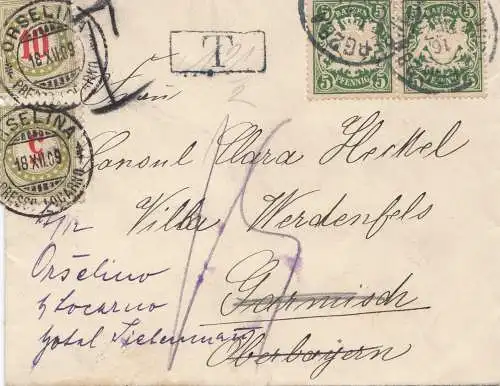 ORSELINA
10
18.XII.09
(PRESSO LOCARNO)
T
BAYERN
5 PFENNIG 5
BAYERN
5 PFENNIG 5
ORSELINA
5
18.XII.09
(PRESSO LOCARNO)
Frau
2
Consul Clara Heckel
Villa Werdenfels
Garmisch
Oberbayern
15
Orselino
Locarno
Hotel